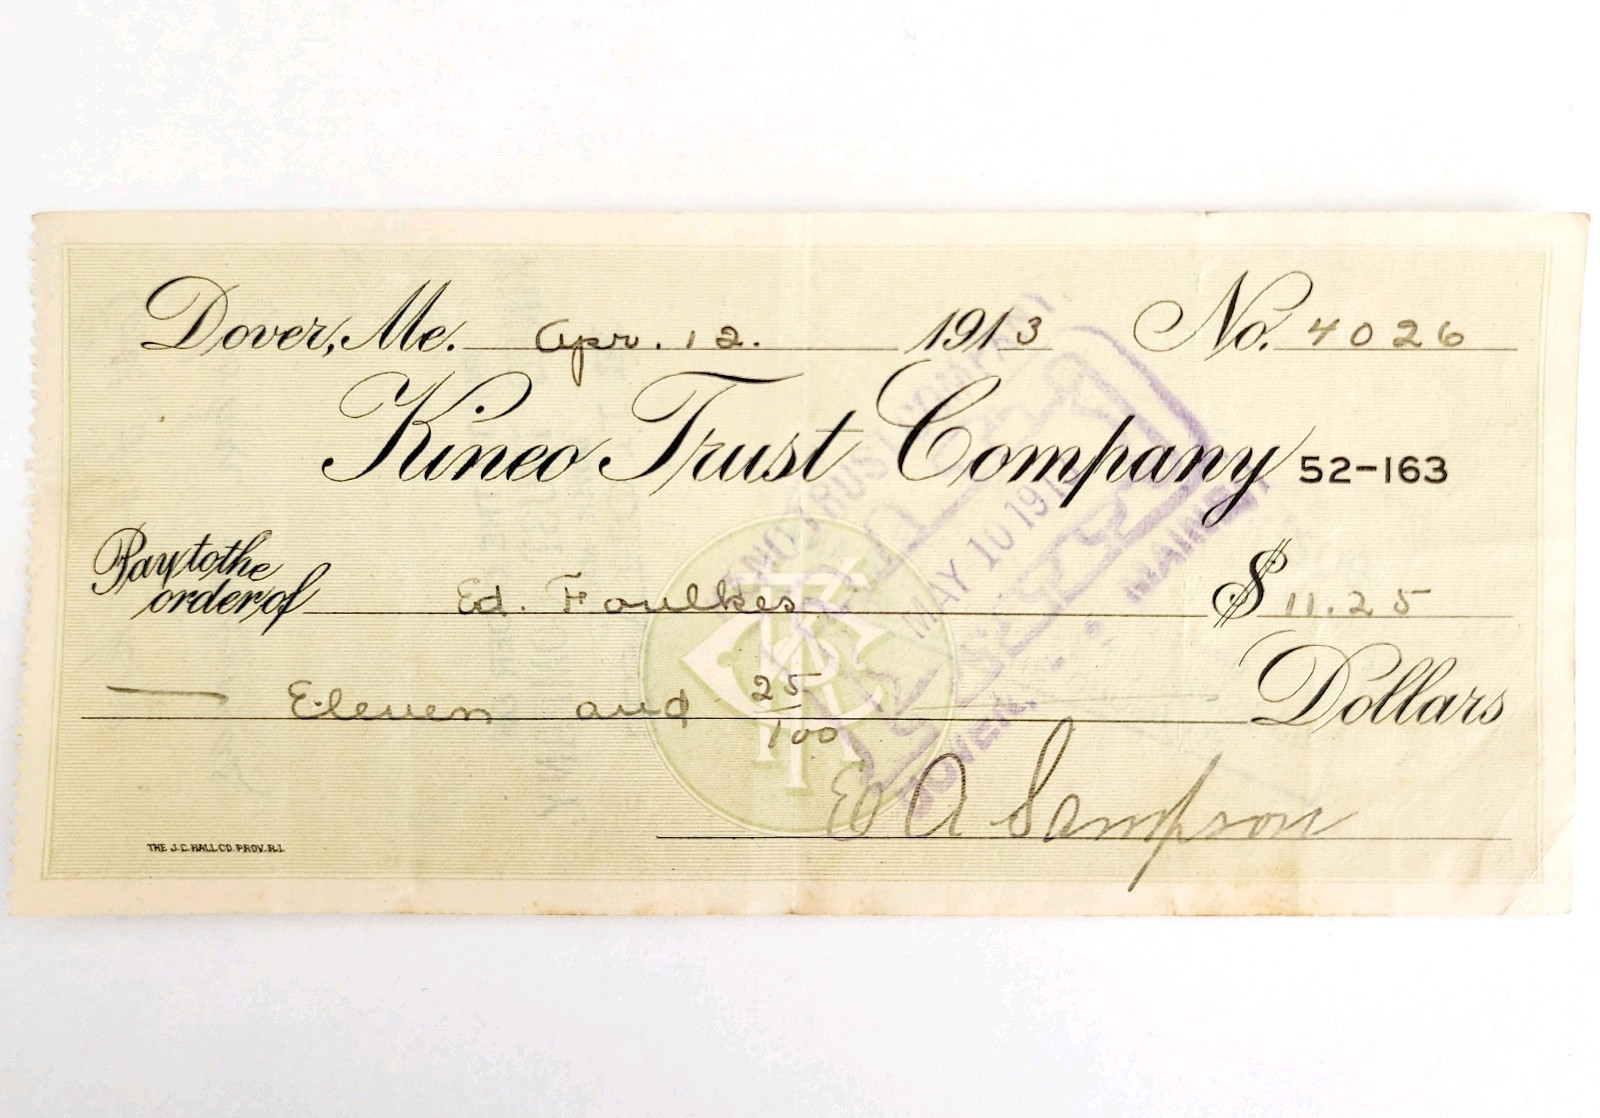 Dover, Me. Apr. 12. 1913 No. 4026
Kineo Trust Company 52-163
Pay to the order of Ed. Foulkes $ 11.25
Eleven and 25/100 Dollars
E A Sampson
THE J.C. HALL CO. PROV. R.I.
KINEO TRUST COMPANY
PAID
MAY 10 191
DOVER, MAINE